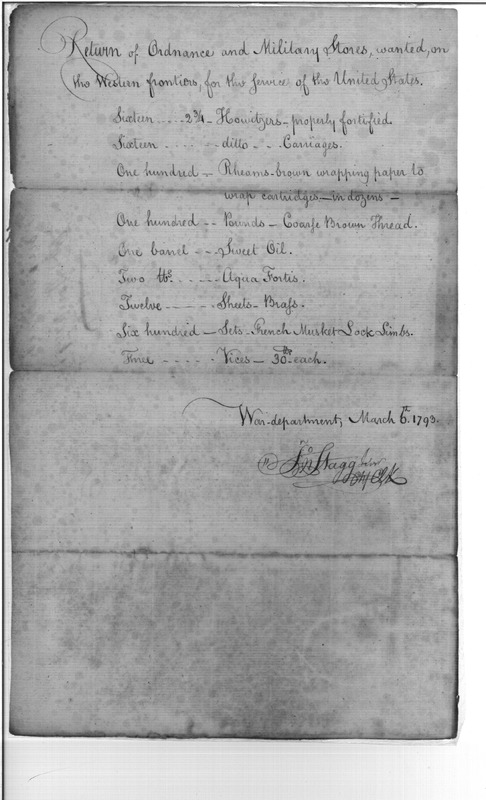 Return of Ordnance and Military Stores, wanted, on
the Western frontiers, for the Service of the United States.
Sixteen .... 2 3/4 - Howitzers - properly fortified.
Sixteen ..... ditto - . Carriages.
One hundred - Rheams-brown wrapping paper to
wrap cartridges - in dozens -
One hundred - - Pounds - Coarse Brown Thread.
One barrel - - Sweet Oil.
Two lbs. ..... Aqua Fortis.
Twelve ----- Sheets - Brass.
Six hundred - Sets - French Musket Lock Limbs.
Three ..... Vices - 30 lbs - each.
War-department, March 6th. 1793.
Jno Stagg Junr
Clk